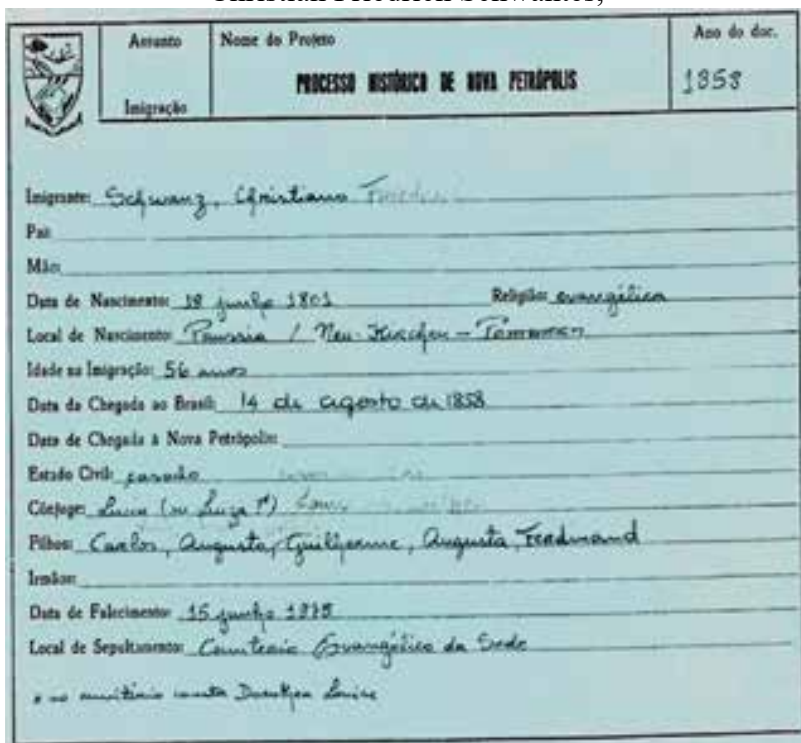 Christian Friedrich Schwantes,
Assunto
Imigração
Nome do Projeto
PROCESSO HISTÓRICO DE NOVA PETRÓPOLIS
Ano do doc.
1858
Imigrante: Schwanz, Christiano
Pai:
Mãe:
Data de Nascimento: 18 junho 1801 Religião: evangélica
Local de Nascimento: Prussia / Neu-Kirchen -
Idade na Imigração: 56 anos
Data da Chegada ao Brasil: 14 de agosto de 1858
Data de Chegada à Nova Petrópolis:
Estado Civil: casado
Cônjuge: Luisa (ou Luiza
Filhos: Carlos, Augusto, Guilherme, Augusta, Ferdinand
Irmãos:
Data de Falecimento: 15 junho
Local de Sepultamento: Cemitério Evangélico da Sede
Louise